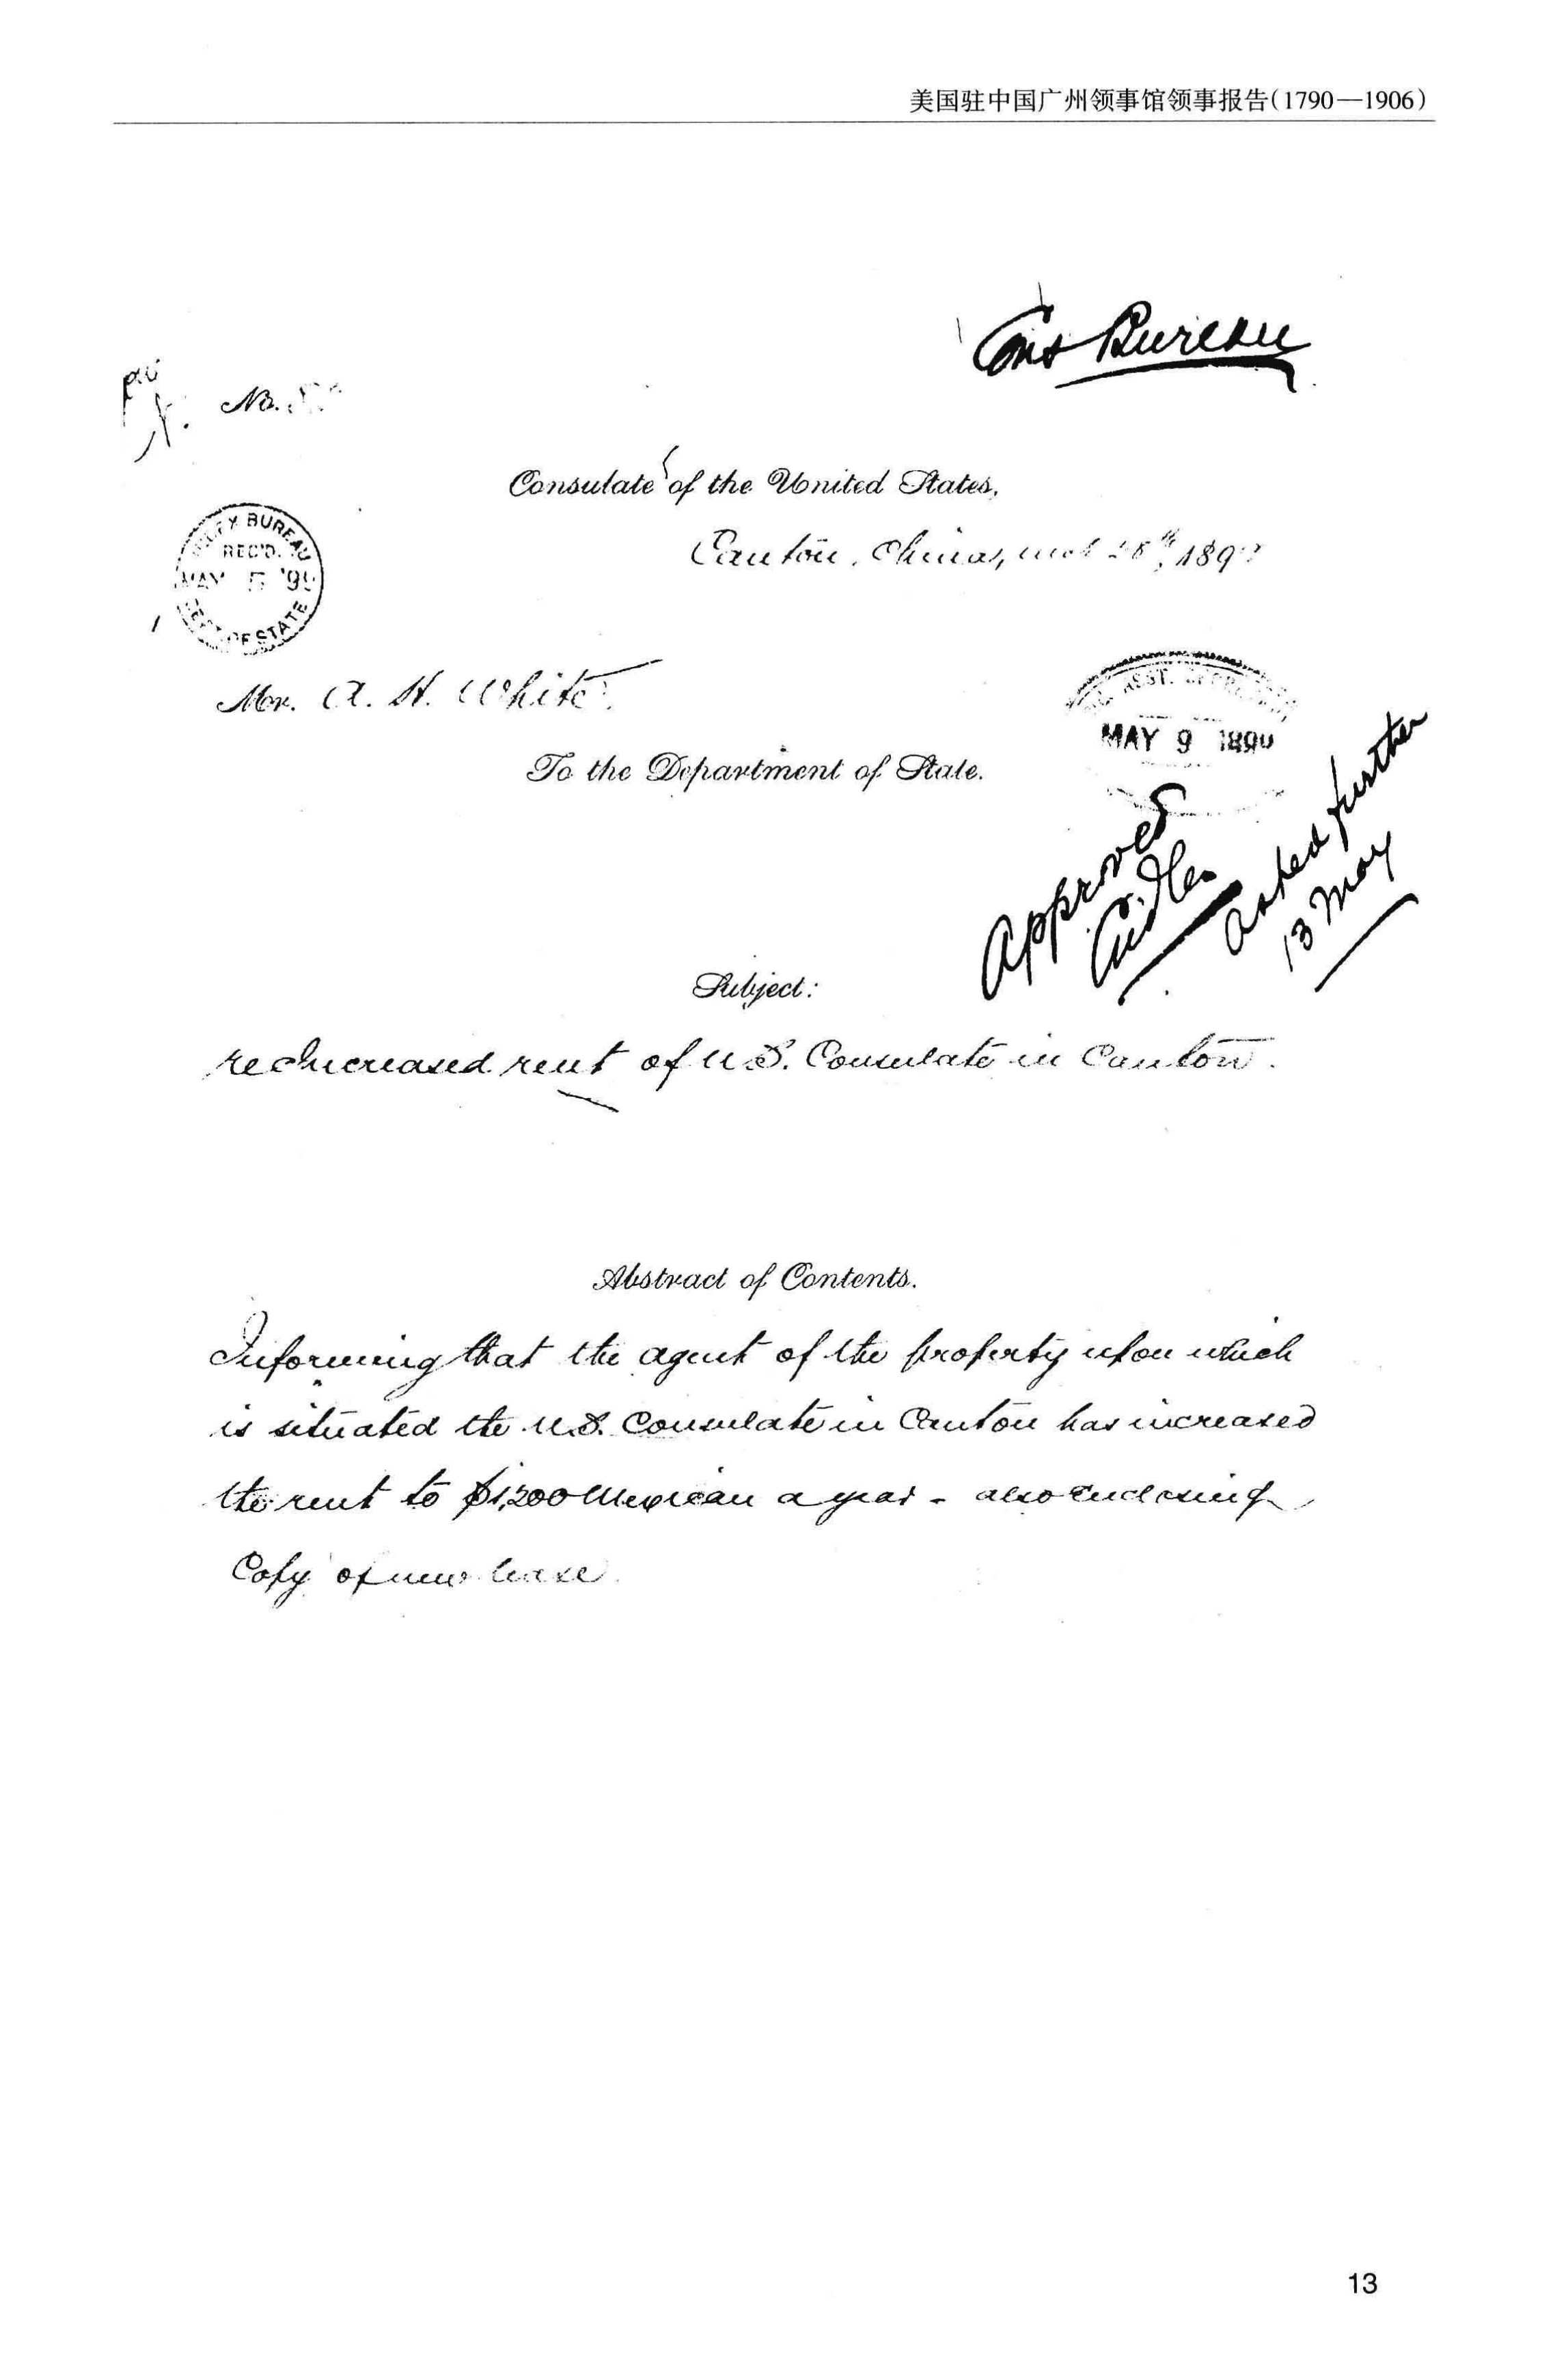 美国驻中国广州领事馆领事报告(1790—1906)
Cons Bureau
No.
Consulate of the United States,
Canton, China, 28th, 189
BUREAU
REC'D.
MAY
OF STATE
Mr. A. H. White
ASST.
MAY 9 1890
To the Department of State.
Approved
asked further
13 May
Subject:
re Increased rent of U.S. Consulate in Canton.
Abstract of Contents.
Informing that the agent of the property upon which
is situated the U.S. Consulate in Canton has increased
the rent to $1,200 Mexican a year - also enclosing
Copy of new lease.
13